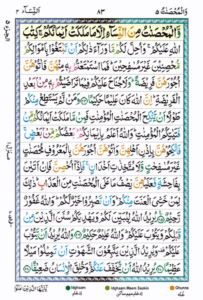 وَالْمُحْصَنٰتُ ٥ ٨٣ النِّسَآء ٤
وَّالْمُحْصَنٰتُ مِنَ النِّسَآءِ اِلَّا مَا مَلَكَتْ اَيْمَانُكُمْ كِتٰبَ
اللّٰهِ عَلَيْكُمْ وَاُحِلَّ لَكُمْ مَّا وَرَآءَ ذٰلِكُمْ اَنْ تَبْتَغُوْا بِاَمْوَالِكُمْ
مُّحْصِنِيْنَ غَيْرَ مُسٰفِحِيْنَ فَمَا اسْتَمْتَعْتُمْ بِهٖ مِنْهُنَّ فَاٰتُوْهُنَّ
اُجُوْرَهُنَّ فَرِيْضَةً وَلَا جُنَاحَ عَلَيْكُمْ فِيْمَا تَرٰضَيْتُمْ بِهٖ مِنْ بَعْدِ
الْفَرِيْضَةِ اِنَّ اللّٰهَ كَانَ عَلِيْمًا حَكِيْمًا وَمَنْ لَّمْ يَسْتَطِعْ مِنْكُمْ
طَوْلًا اَنْ يَّنْكِحَ الْمُحْصَنٰتِ الْمُؤْمِنٰتِ فَمِنْ مَّا مَلَكَتْ اَيْمَانُكُمْ
مِّنْ فَتَيٰتِكُمُ الْمُؤْمِنٰتِ وَاللّٰهُ اَعْلَمُ بِاِيْمَانِكُمْ بَعْضُكُمْ مِّنْ بَعْضٍ
فَانْكِحُوْهُنَّ بِاِذْنِ اَهْلِهِنَّ وَاٰتُوْهُنَّ اُجُوْرَهُنَّ بِالْمَعْرُوْفِ مُحْصَنٰتٍ
غَيْرَ مُسٰفِحٰتٍ وَّلَا مُتَّخِذٰتِ اَخْدَانٍ فَاِذَآ اُحْصِنَّ فَاِنْ اَتَيْنَ
بِفَاحِشَةٍ فَعَلَيْهِنَّ نِصْفُ مَا عَلَى الْمُحْصَنٰتِ مِنَ الْعَذَابِ ذٰلِكَ
لِمَنْ خَشِيَ الْعَنَتَ مِنْكُمْ وَاَنْ تَصْبِرُوْا خَيْرٌ لَّكُمْ وَاللّٰهُ غَفُوْرٌ
رَّحِيْمٌ يُرِيْدُ اللّٰهُ لِيُبَيِّنَ لَكُمْ وَيَهْدِيَكُمْ سُنَنَ الَّذِيْنَ مِنْ قَبْلِكُمْ
وَيَتُوْبَ عَلَيْكُمْ وَاللّٰهُ عَلِيْمٌ حَكِيْمٌ وَاللّٰهُ يُرِيْدُ اَنْ
يَّتُوْبَ عَلَيْكُمْ وَيُرِيْدُ الَّذِيْنَ يَتَّبِعُوْنَ الشَّهَوٰتِ اَنْ تَمِيْلُوْا مَيْلًا
عَظِيْمًا يُرِيْدُ اللّٰهُ اَنْ يُّخَفِّفَ عَنْكُمْ وَخُلِقَ الْاِنْسَانُ ضَعِيْفًا